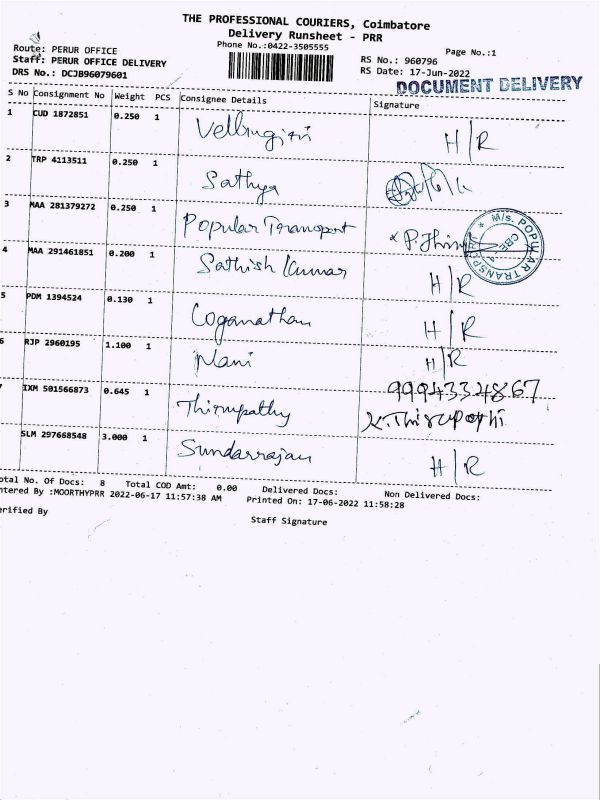 THE PROFESSIONAL COURIERS, Coimbatore
Delivery Runsheet - PRR
Phone No.:0422-3505555
Page No.:1
Route: PERUR OFFICE
Staff: PERUR OFFICE DELIVERY
RS No.: 960796
DRS No.: DCJB96079601
RS Date: 17-Jun-2022
DOCUMENT DELIVERY
S No Consignment No Weight PCS Consignee Details Signature
1 CUD 1872851 0.250 1 Vellingiri H/R
2 TRP 4113511 0.250 1 Sathya
3 MAA 281379272 0.250 1 Popular Transport
M/s. POPULAR TRANSPORT CBE
4 MAA 291461851 0.200 1 Sathish Kumar H/R
5 PDM 1394524 0.130 1 Loganathan H/R
6 RJP 2960195 1.100 1 Mani H/R
IXM 501566873 0.645 1 Thirupathy 9994334867
K.Thirupathi
SLM 297668548 3.000 1 Sundarrajan H/R
otal No. Of Docs: 8 Total COD Amt: 0.00 Delivered Docs: Non Delivered Docs:
ntered By :MOORTHYPRR 2022-06-17 11:57:38 AM Printed On: 17-06-2022 11:58:28
erified By
Staff Signature